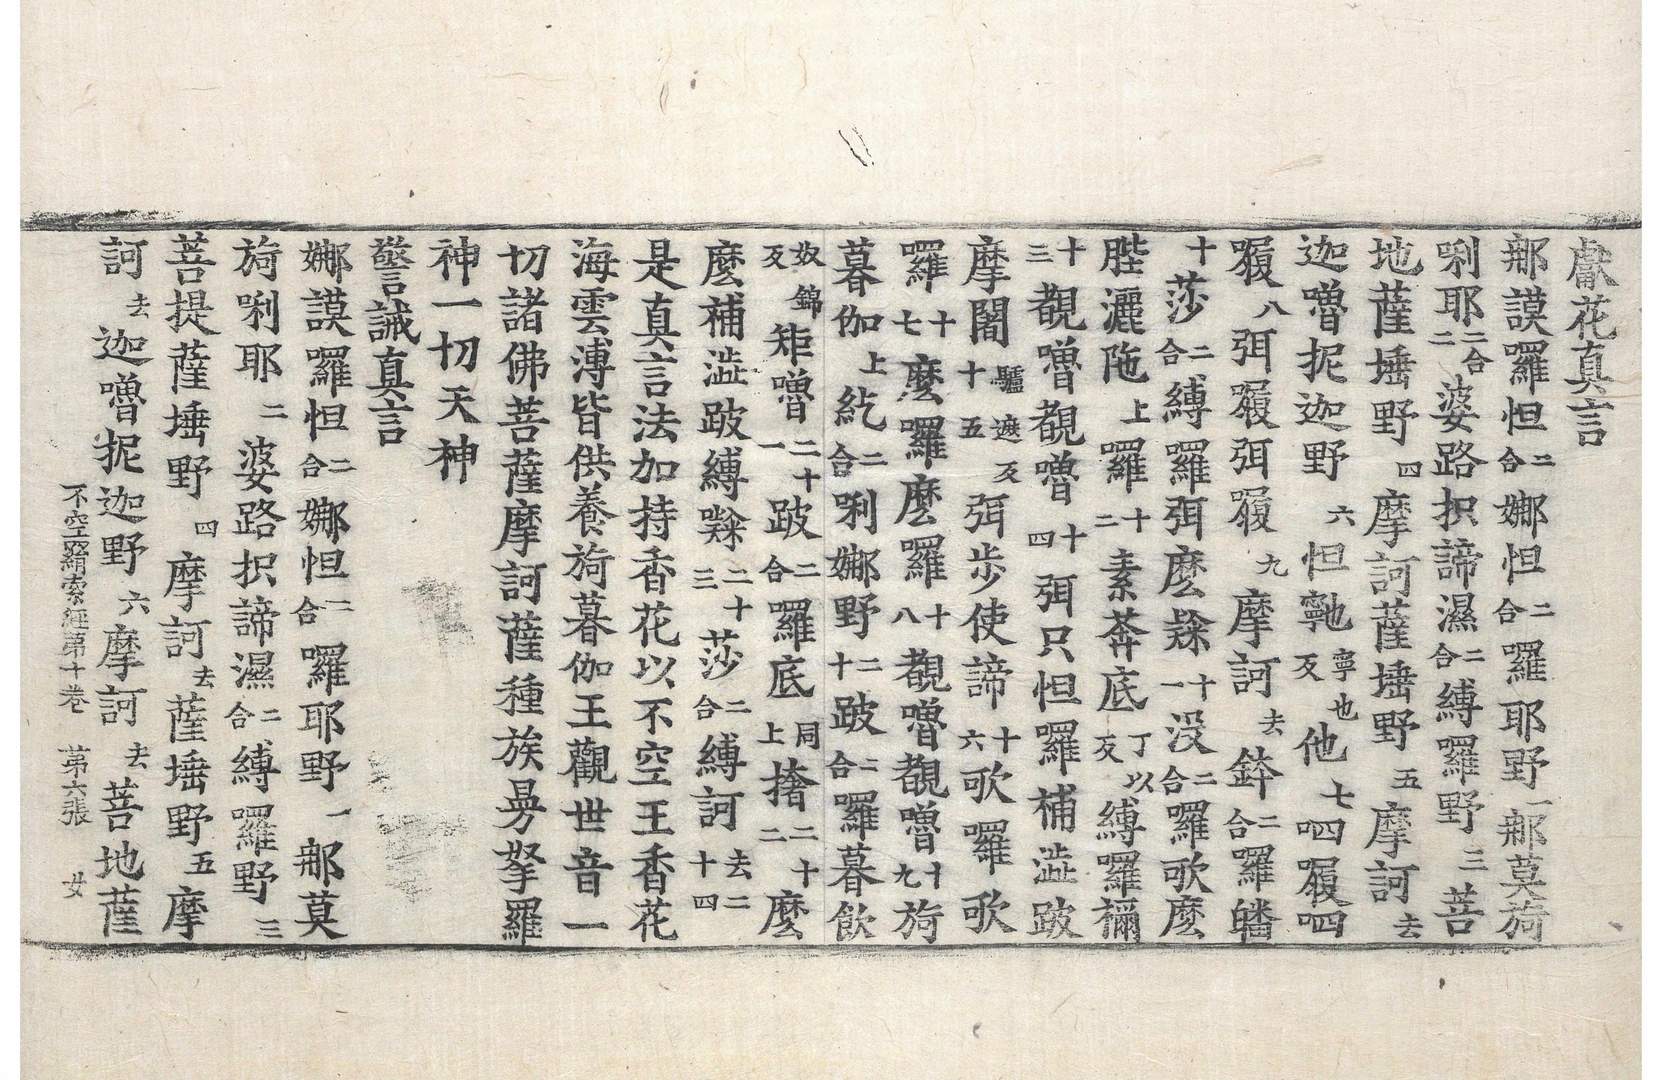 獻花真言
那謨囉怛二合娜怛二合囉耶野一那莫旖
唎耶二合二婆路抧諦濕二合縛囉野三菩
地薩埵野四摩訶薩埵野五摩訶去
迦嚕抳迦野六怛㝹寧也反他七呬履呬
履八弭履弭履九摩訶去鉢二合囉皤
十莎二合縛囉弭麼𨅖十一没二合囉歌麼
陛灑陁上囉十二素莾底丁以反縛囉禰
十三覩嚕覩嚕十四弭只怛囉補澁跛
摩闍驢遮反十五弭步使諦十六歌囉歌
囉十七麼囉麼囉十八覩嚕覩嚕十九旖
暮伽上紇二合唎娜野二十跛二合囉暮飲
奴錦反矩嚕二十一跛二合囉底上同撦二十二麼
麼補澁跛縛㘑二十三莎二合縛訶去二十四
是真言法加持香花以不空王香花
海雲溥皆供養旖暮伽王觀世音一
切諸佛菩薩摩訶薩種族曼拏羅
神一切天神
警誡真言
娜謨囉怛二合娜怛二合囉耶野一那莫
旖唎耶二婆路抧諦濕二合縛囉野三
菩提薩埵野四摩訶去薩埵野五摩
訶去迦嚕抳迦野六摩訶去菩地薩
不空羂索經第十卷 第六張 女